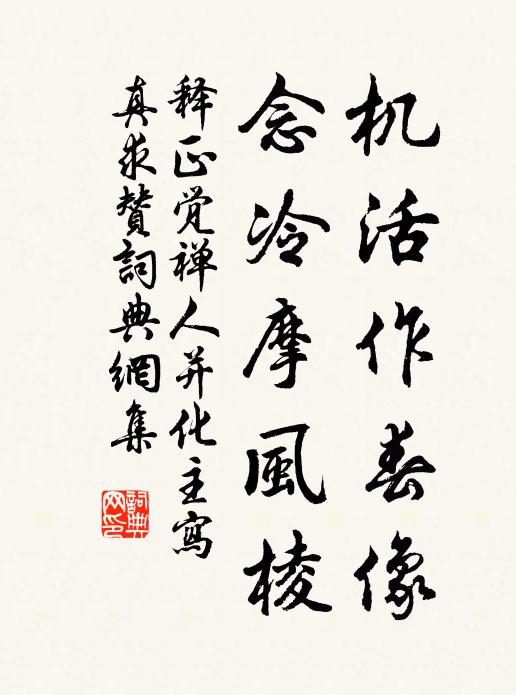 机活作春像
念冷摩風棱
释正觉禅人并化主寫
真求赞詞典網集
詞典网印